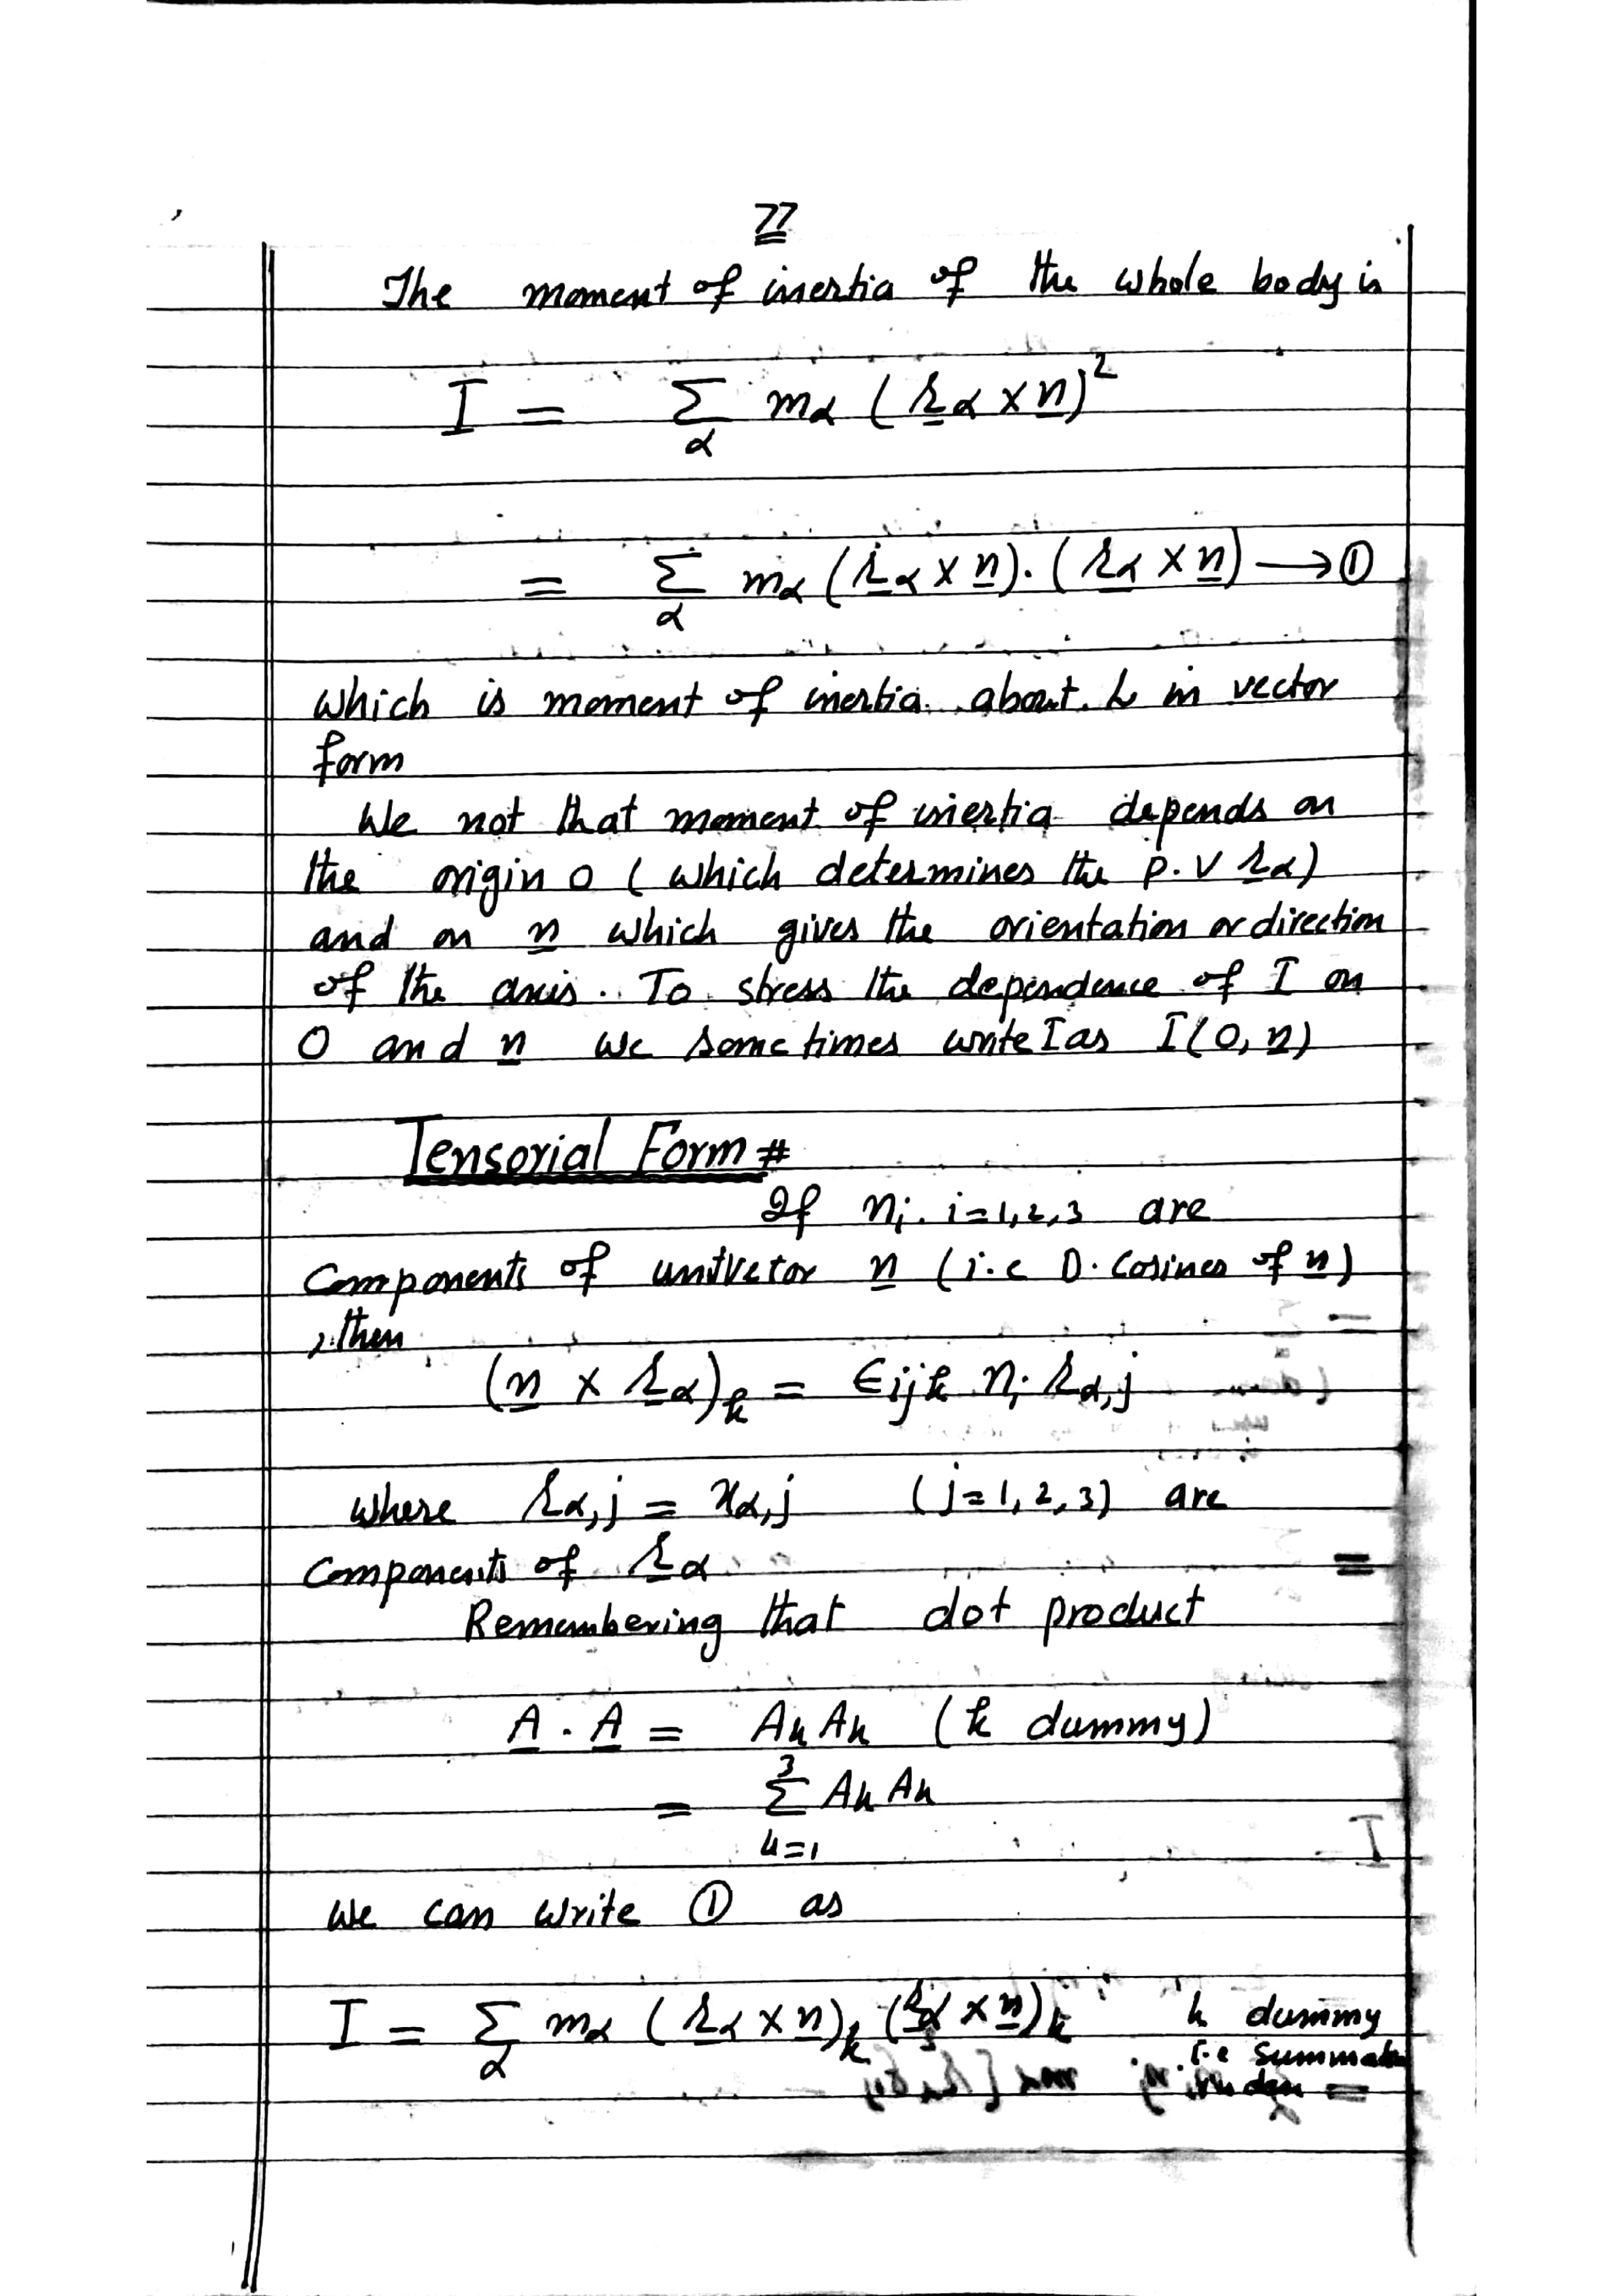 77
The moment of inertia of the whole body is
I = Σ_α mα (r̲α × n̲)²
= Σ_α mα (r̲α × n̲) . (r̲α × n̲) → ①
which is moment of inertia about L in vector
form
We not that moment of inertia depends on
the origin O ( which determines the p.v r̲α)
and on n̲ which gives the orientation or direction
of the axis. To stress the dependence of I on
O and n̲ we sometimes write I as I(O, n)
Tensorial Form #
If ni . i=1,2,3 are
Components of unitvetor n̲ (i.e D. Cosines of n̲)
, then
(n̲ × r̲α)k = ϵijk ni rα,j
where rα,j = xα,j (j=1,2,3) are
Components of r̲α
Remembering that dot product
A̲ . A̲ = Ak Ak (k dummy)
= Σ_{k=1}^{3} Ak Ak
we can write ① as
I = Σ_α mα (r̲α × n̲)k (r̲α × n̲)k k dummy
i.e summation
index